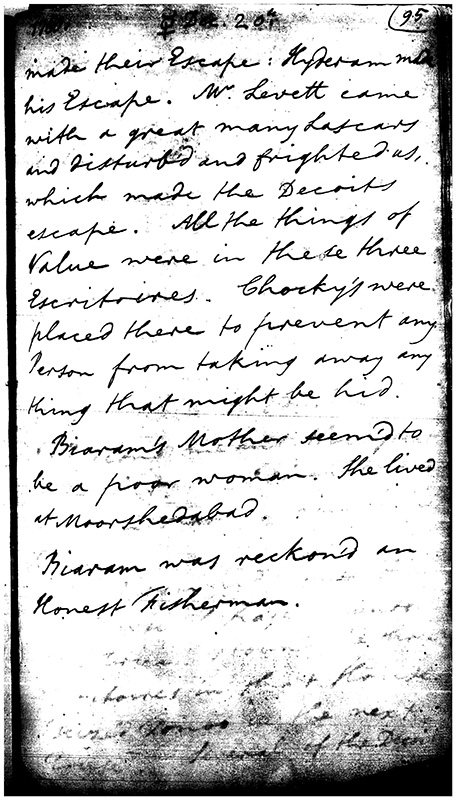 ♀ Dec. 20th 95
made their Escape: Hyderam made
his Escape. Mr. Levett came
with a great many Lascars
and disturb'd and frighted us,
which made the Decoits
escape. All the things of
Value were in these three
Escritoires. Chocky's were
placed there to prevent any
Person from taking away any
thing that might be hid.
Biaram's Mother seem'd to
be a poor woman. She lived
at Moorshedabad.
Biaram was reckon'd an
Honest Fisherman.